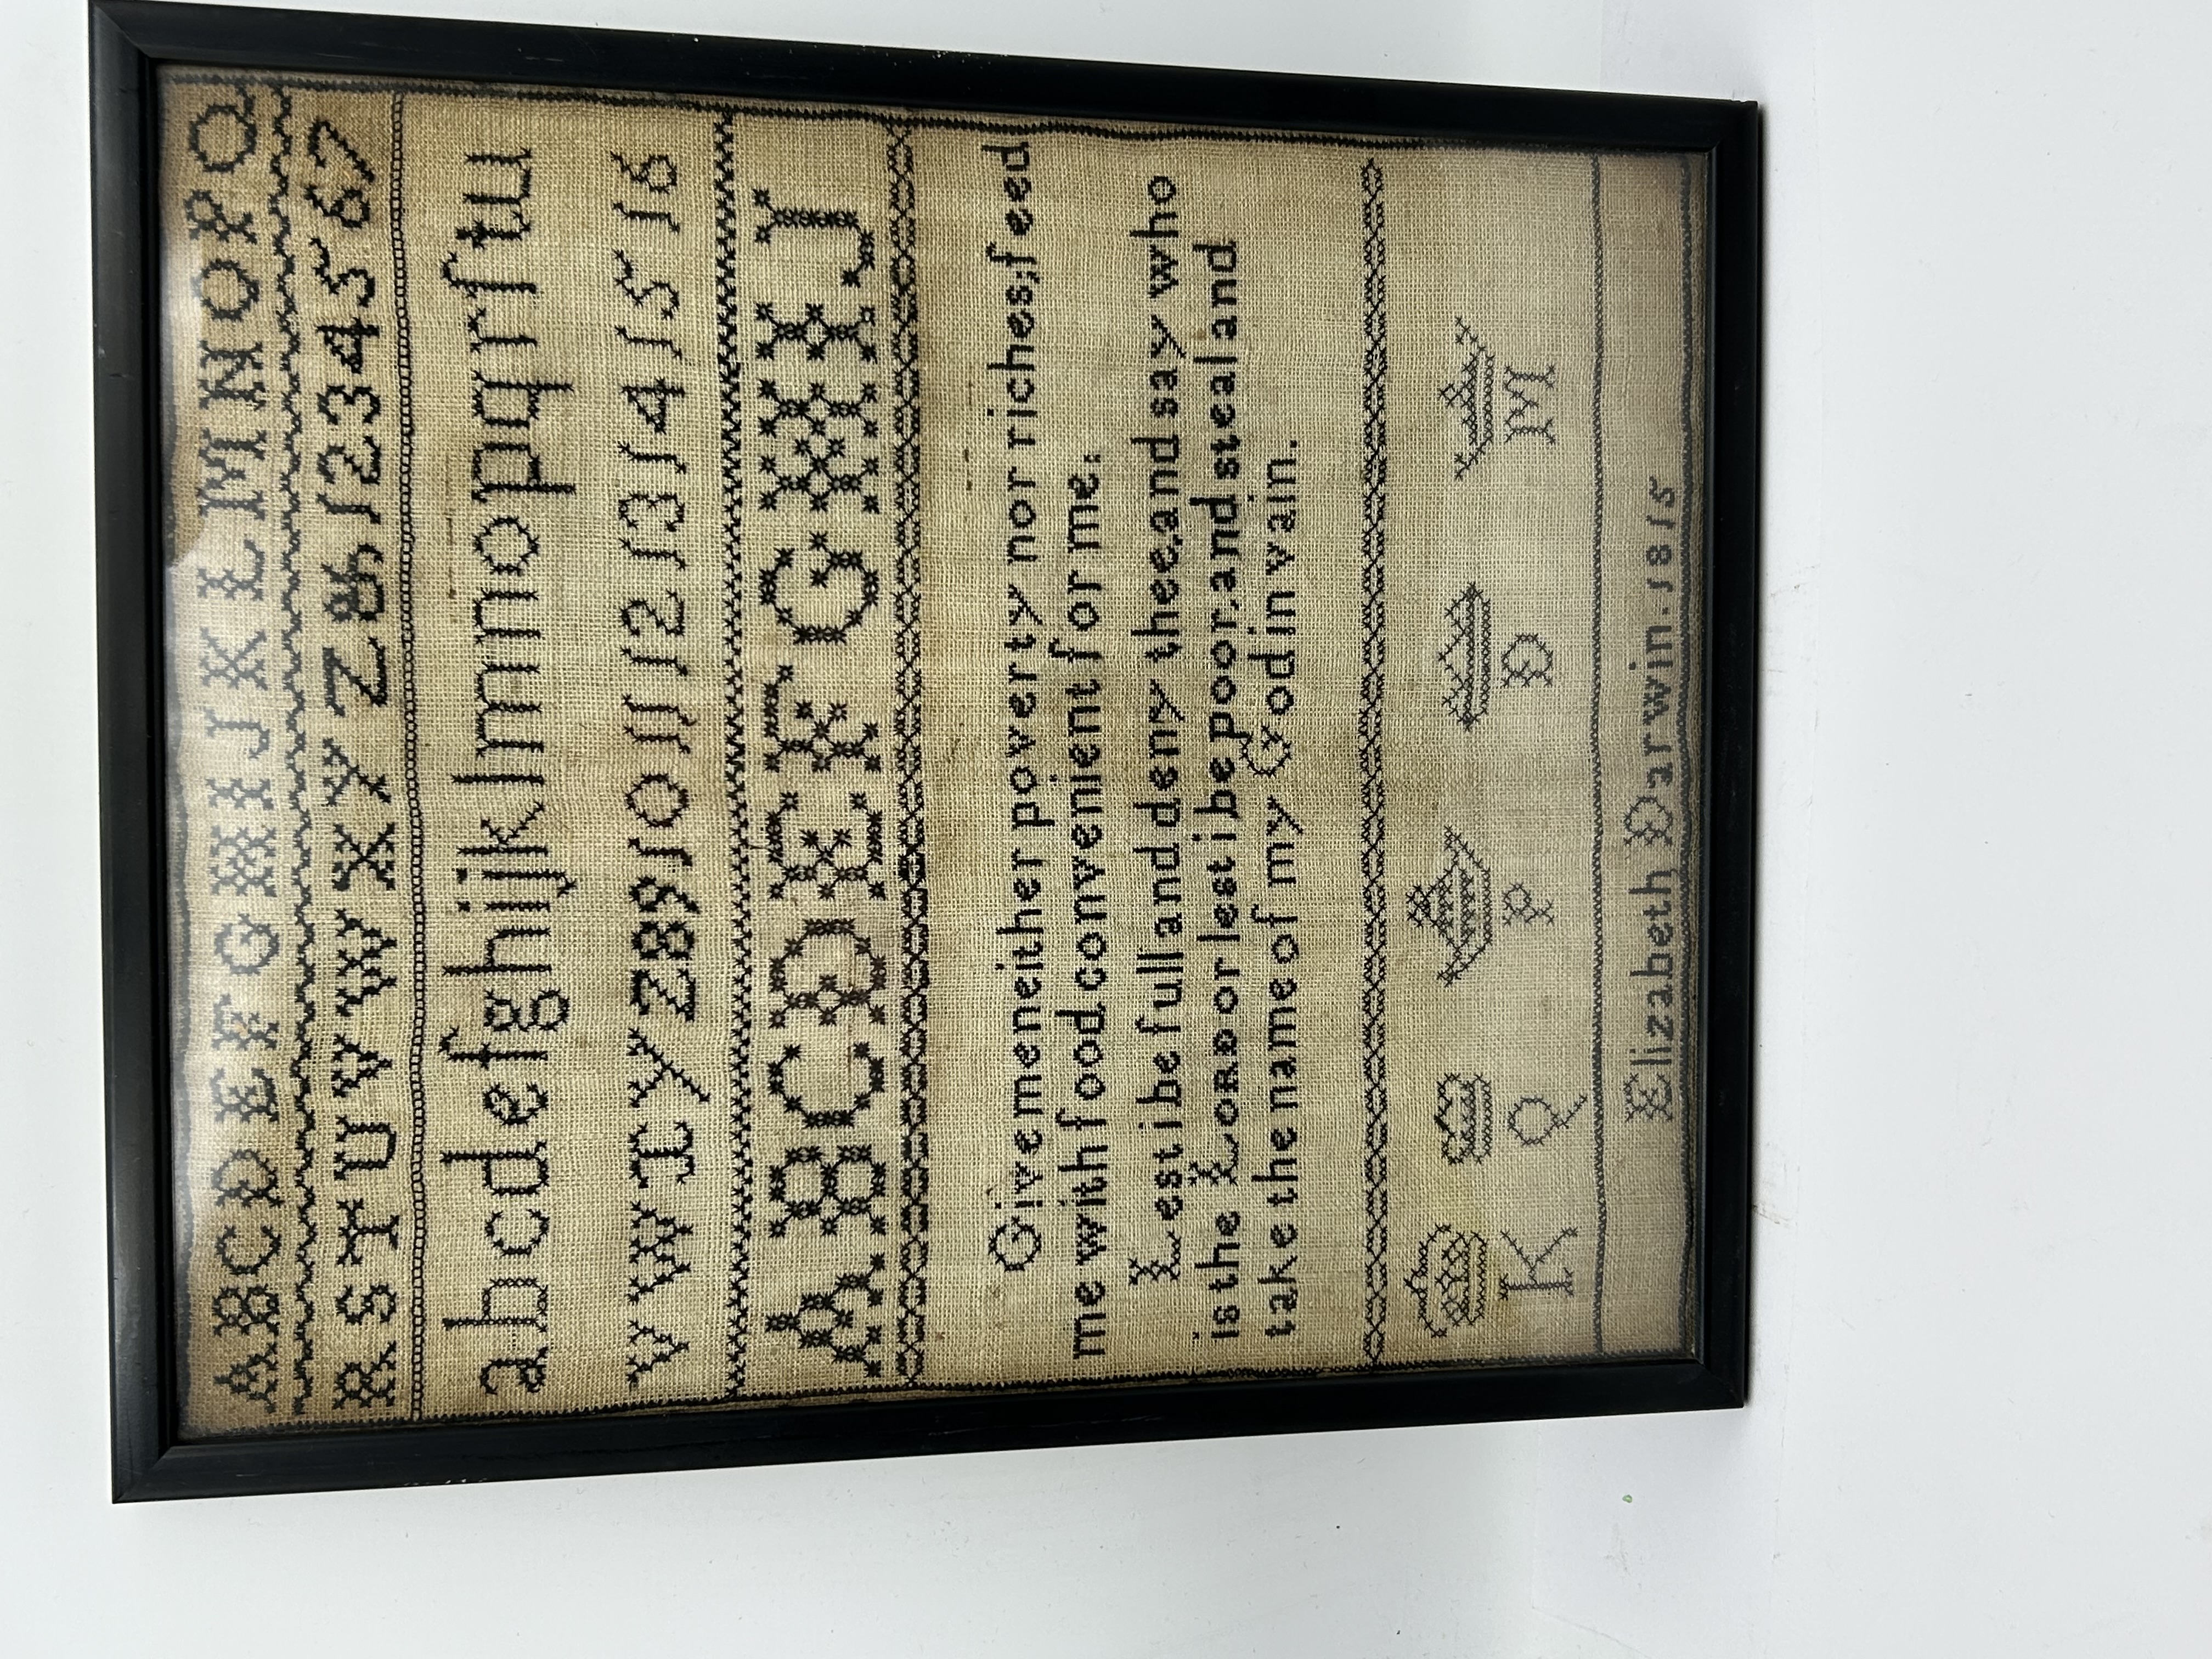 A B C D E F G H I J K L M N O P Q
R S T U V W X Y Z & 1 2 3 4 5 6 7
a b c d e f g h i j k l m n o p q r ſ t u
v w x y z 8 9 10 11 12 13 14 15 16
A B C D E K G H I J
Give me neither poverty nor riches; feed
me with food convenient for me.
Lest i be full and deny thee, and say who
is the LORD or lest i be poor, and steal and
take the name of my God in vain.
K Q P D M
Elizabeth Darwin. 1815